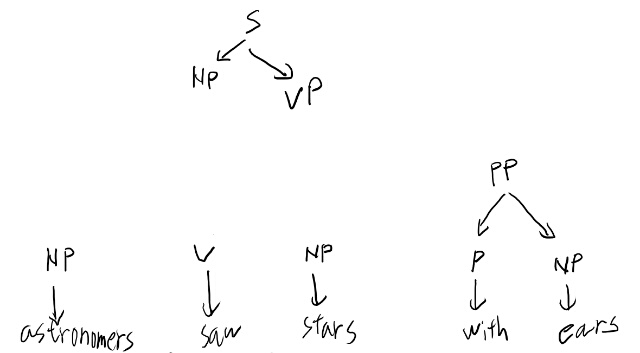 S
NP VP
PP
NP V NP P NP
astronomers saw stars with ears